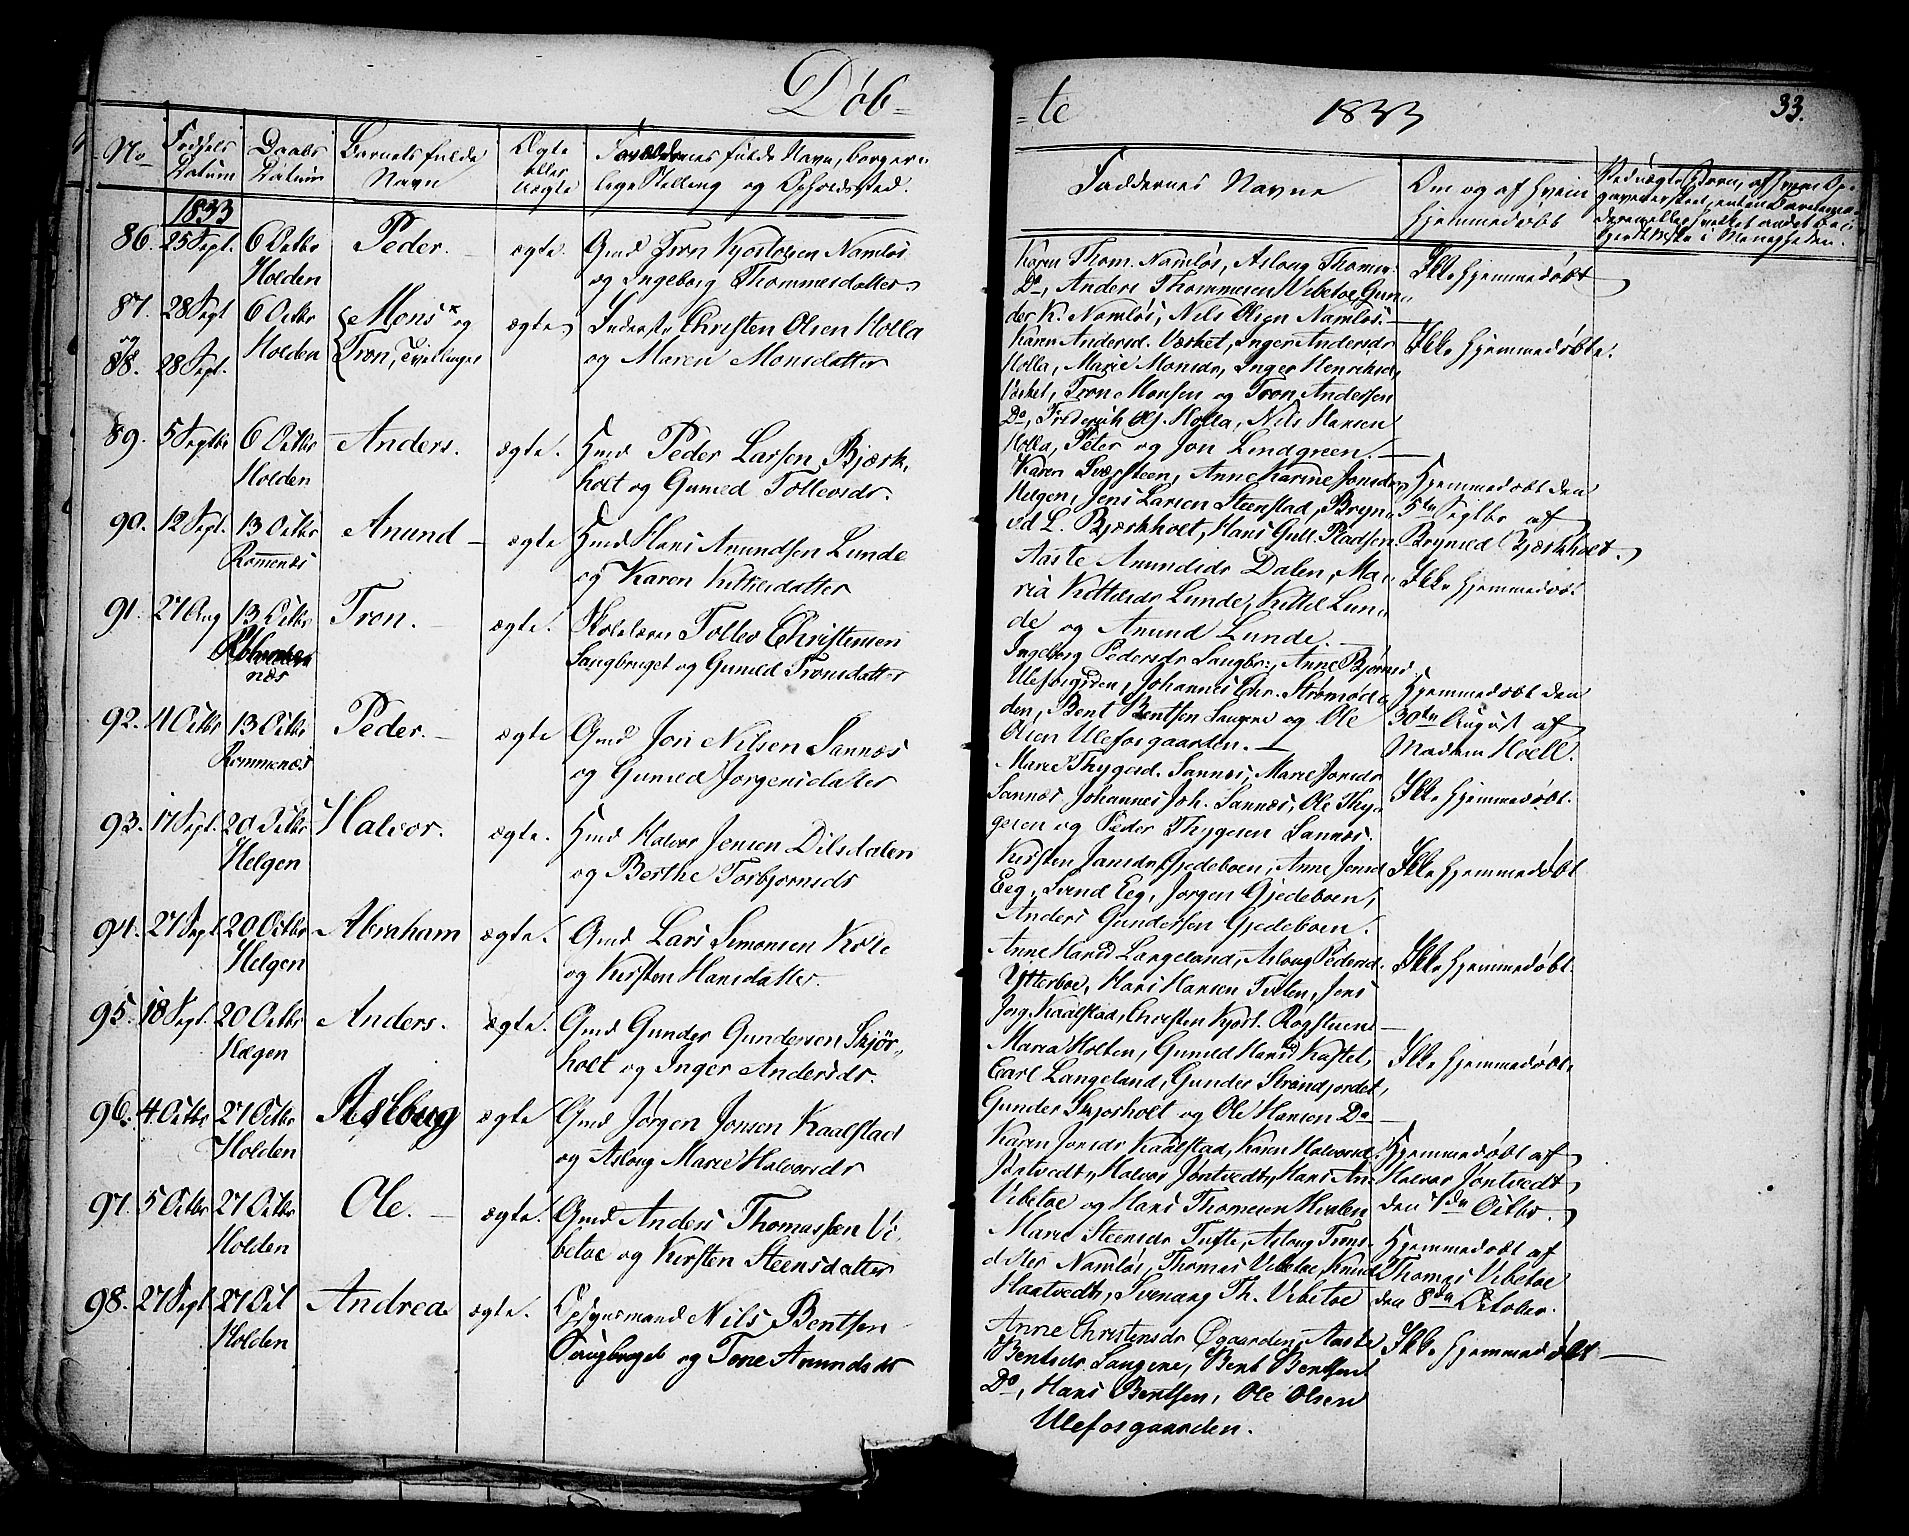 Døb-
-te 1833 33.
No
Fødsels Datum
Daabs Datum
Barnets fulde Navn
Ægte eller uægte
Forældrenes fulde Navn, borgerlige Stilling og Opholdssted.
Faddernes Navne
Om og af hvem hjemmedøbt
1833
86. 25 Sept. 6 Octbr Holden Peder. ægte. Gmd Tron Kjostolsen Namløs
og Ingeborg Thommesdatter.
Karen Thom. Namløs, Aslaug Thomesd.
Do, Anders Thommesen Vibetoe, Gun-
der K. Namløs, Nils Olsen Namløs.
Ikke hjemmedøbt
87. og 88. 28 Sept 28 Sept. 6 Octbr Holden Mons og
Tron, Tvillinger ægte Inderste Christen Olsen Holla
og Maren Monsdatter
Karen Andersd. Værket, Inger Andersdr
Holla, Marie Monsdr, Inger Henriksdr
Værket, Tron Monsen og Tron Anderssen
Do, Frederich Holla, Nils Hansen
Holla, Peter og Jon Lindgreen.
Ikke hjemmedøbte.
89. 5 Septbr 6 Octbr Holden Anders. ægte. Hmd Peder Larsen Bjærk-
holt og Gunild Tollevsdr.
Karen Sværsteen, Anne Karine Jonsdr
Helgen, Jens Larsen Steenstad, Bryn-
ild L. Bjærkholt, Hans Gull. Pladsen
Hjemmedøbt den
5te Septbr af
Brynild Bjærkholt.
90. 12 Sept. 13 Octbr Romenæs Anund ægte Hmd Hans Anundsen Lunde
og Karen Kittelsdatter
Aaste Anundsdr Dalen, Ma-
ria Kittelsdr Lunde, Kittil Lun-
de og Anund Lunde.
Ikke hjemmedøbt
91. 27 Aug 13 Octbr Tron. ægte. Skolelærer Tollev Christensen
Saugbruget og Gunild Tronsdatter
Ingeborg Pedersdr Saugbr:, Anne Bjørnsd.
Ulefosgaden, Johannes Chr. Strømsod-
den, Bent Bentsen Saugene og Ole
Olsen Ulefosgaarden.
Hjemmedøbt den
30te August af
Madam Hoell.
92. 4 Octbr 13 Octbr Rommenæs Peder. ægte Gmd Jon Nilsen Sannæs
og Gunild Jørgensdatter
Marie Thygesd. Sannæs, Maren Jonsdr
Sannæs, Johannes Joh. Sannæs, Ole Thy-
gesen og Peder Thygesen Sannæs.
Ikke hjemmedøbt.
93. 17 Sept. 20 Octbr Helgen Halvor. ægte. Hmd Halvor Jensen Dilsdalen
og Berthe Torbjørnsdr
Kirsten Jansdr Gjedeboen, Anne Jensd
Eeg, Svend Eeg, Jørgen Gjedeboen,
Anders Gundersen Gjedeboen.
Ikke hjemmedøbt
94. 27 Sept 20 Octbr Helgen Abraham ægte. Gmd Lars Simonsen Kaase
og Kirsten Hansdatter.
Anne Hansd Langeland, Aslaug Pedersd.
Ytterboe, Hans Hansen Tveten, Jens
Jørg. Kaalstad, Christen Kjøst. Rogstuen
Ikke hjemmedøbt.
95. 18 Sept. 20 Octbr Hægen Anders. ægte. Gmd Gunder Gundersen Skjør-
holt og Inger Andersdr.
Maria Holten, Gunild Hansd Kastel,
Carl Langeland, Gunder Strandjordet,
Gunder Skjørholt og Ole Hansen Do
Ikke hjemmedøbt.
96. 4 Octbr 27 Octbr Holden Aslaug ægte Gmd Jørgen Jonsen Kaalstad
og Aslaug Marie Halvorsdr
Karen Jonsdr Kaalstad, Karen Halvorsd.
Jontvedt, Halvor Jontvedt, Hans An.
Vibetoe og Hans Thomesen Hvalen
Hjemmedøbt af
Halvor Jontvedt
den 7de Octbr.
97. 5 Octbr 27 Octbr Holden Ole. ægte. Gmd Anders Thomassen Vi-
betoe og Kirsten Steensdatter
Marie Steensdr Tufte, Aslaug Trons-
datter Namløs, Thomas Vibetoe, Knud
Haatvedt, Svenung Th. Vibetoe
Hjemmedøbt af
Thomas Vibetoe
den 8de October.
98. 27 Sept 27 Oct Holden Andrea ægte. Opsynsmand Nils Bentsen
Saugbruget og Tone Anundsdr
Anne Christensdr Øgaarden, Aaste
Bentsdr Saugene, Bent Bentsen
Do, Hans Bentsen, Ole Olsen
Ulefosgaarden.
Ikke hjemmedøbt